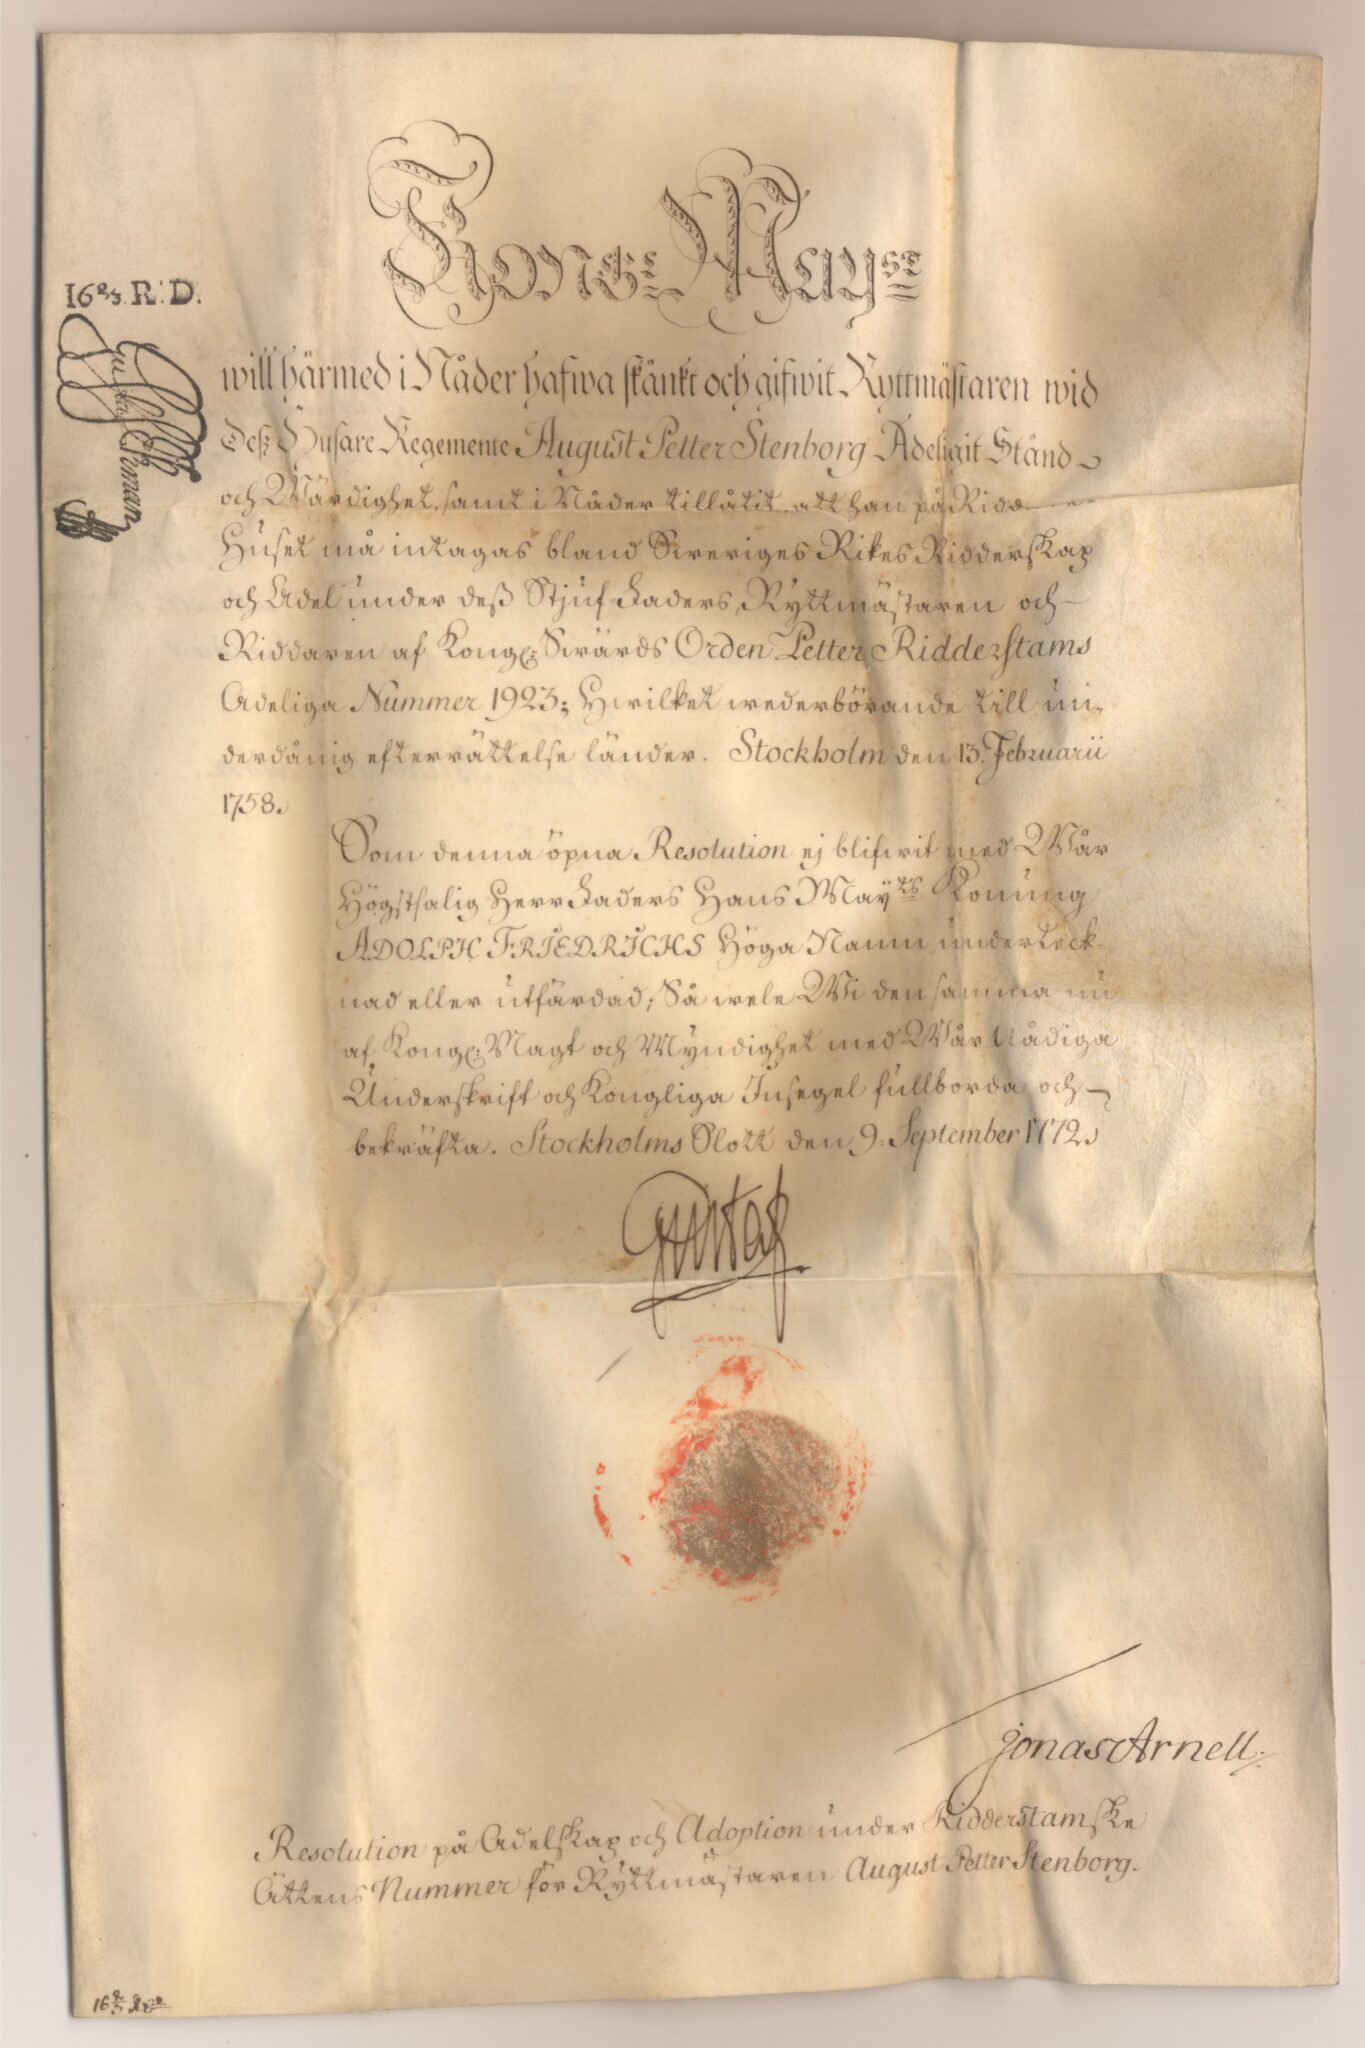 Kongl. May:st
16 2/3 R: D.
will härmed i Nåder hafwa skänkt och gifwit Ryttmästaren wid
Deß Husare Regemente August Petter Stenborg Adeligit Stånd
och Wärdighet, samt i Nåder tillåtit, att han på Ridd
Huset må intagas bland Sweriges Rikes Ridderskap
och Adel under deß Stjuf Faders, Ryttmästaren och
Riddaren af Kongl: Swärds Orden Petter Ridderstams
Adeliga Nummer 1923; Hwilket wederbörande till un-
derdånig efterrättelse länder. Stockholm den 13. Februarii
1758.
Som denna öpna Resolution ej blifwit med Wår
Högstsalig Herr Faders Hans May:ts Konung
ADOLPH FRIEDRICHS Höga Namn underteck-
nad eller utfärdad; Så wele Wi densamma nu
af Kongl: Magt och Myndighet med Wår Nådiga
Underskrift och Kongliga Insegel fullborda och
bekräfta. Stockholms Slott den 9. September 1772.
Gustaf
Jonas Arnell.
Resolution på Adelskap och Adoption under Ridderstamske
Ättens Nummer för Ryttmästaren August Petter Stenborg.